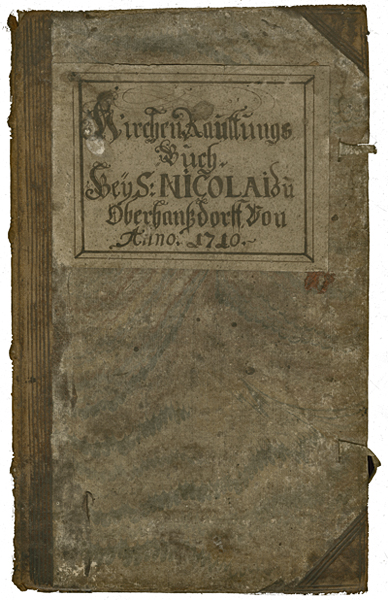 Kirchen Raittungs
Buch.
Bey S: NICOLAI zu
Oberhanßdorff, Von
Anno. 1710.